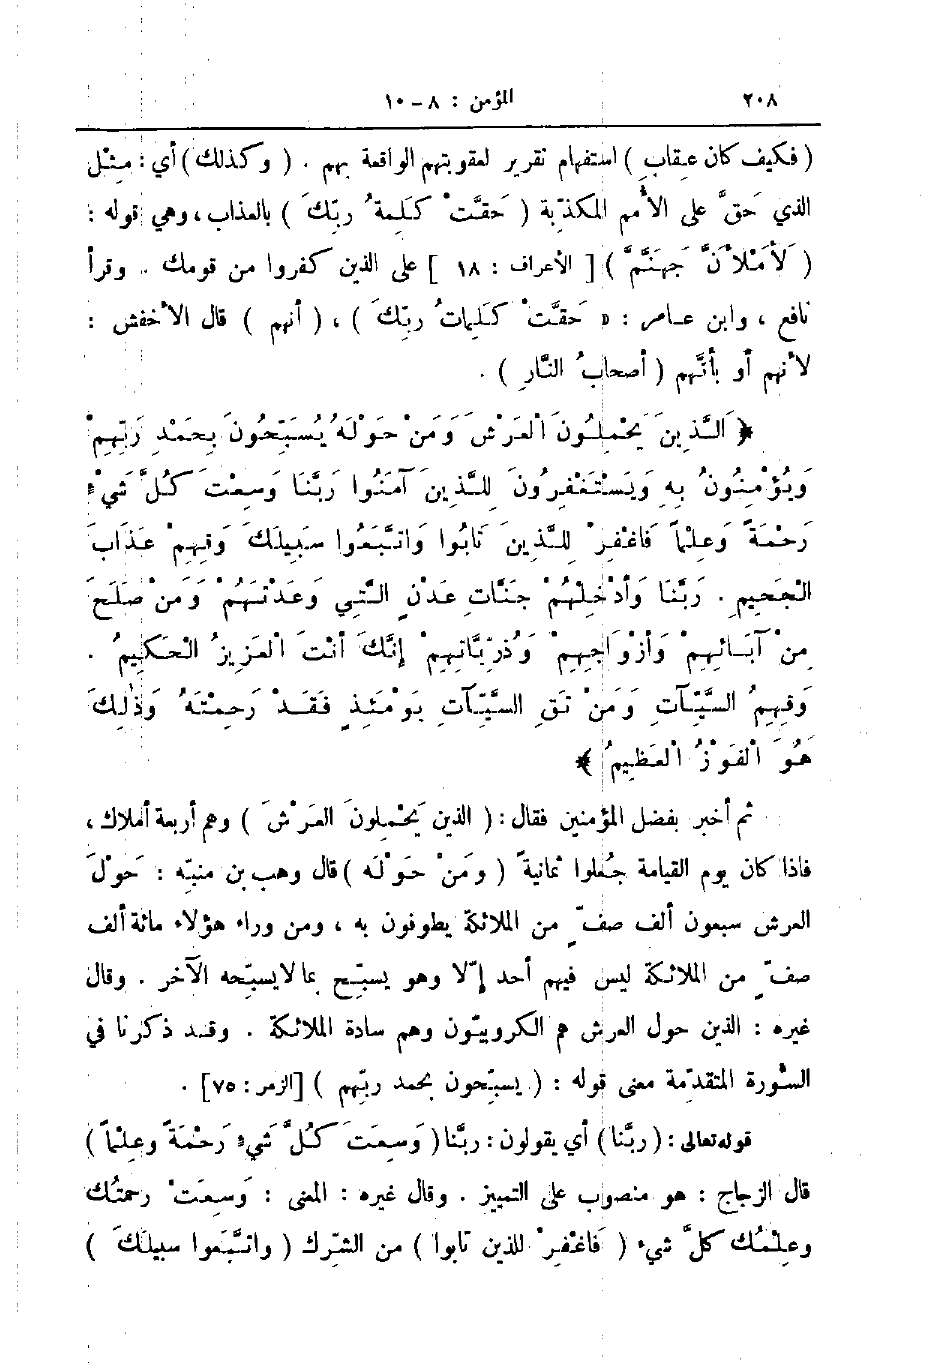 ٢٠٨ المؤمن : ٨ – ١٠
( فكيف كان عِقابِ ) استفهام تقرير لعقوبتهم الواقعة بهم . ( وكذلك ) أي : مِثْل
الذي حَقَّ على الأُمم المكذِّبة ( حَقَّتْ كَلِمةُ ربِّكَ ) بالعذاب ، وهي قوله :
( لَأَمْلَأَنَّ جَهنَّمَّ ) [ الأعراف : ١٨ ] على الذين كفروا من قومك .. وقرأ
نافع ، وابن عامر : « حَقَّتْ كَلِماتُ ربِّكَ ) ، ( أنهم ) قال الأخفش :
لأنهم أو بأنَّهم ( أصحابُ النَّارِ ) .
﴿ الَّذِينَ يَحْمِلُونَ الْعَرْشَ وَمَنْ حَوْلَهُ يُسَبِّحُونَ بِحَمْدِ رَبِّهِمْ
وَيُؤْمِنُونُ بِهِ وَيَسْتَغْفِرُونَ لِلَّذِينَ آمَنُوا رَبَّنَا وَسِعْتَ كُلَّ شَيْءٍ
رَحْمَةً وَعِلْماً فَاغْفِرْ لِلَّذِينَ تَابُوا وَاتَّبَعُوا سَبِيلَكَ وَقِهِمْ عَذَابَ
الْجَحِيمِ . رَبَّنَا وَأَدْخِلْهُمْ جَنَّاتِ عَدْنٍ الَّتِي وَعَدْتَهُمْ وَمَنْ صَلَحَ
مِنْ آبَائِهِمْ وَأَزْوَاجِهِمْ وَذُرِّيَّاتِهِمْ إِنَّكَ أَنْتَ الْعَزِيزُ الْحَكِيمُ .
وَقِهِمُ السَّيِّآتِ وَمَنْ تَقِ السَّيِّآتِ يَوْمَئِذٍ فَقَدْ رَحِمْتَهُ وَذٰلِكَ
هُوَ الْفَوْزُ الْعَظِيمُ ﴾
ثم أخبر بفضل المؤمنين فقال : ( الذين يَحْمِلونَ العَرْشَ ) وهم أربعة أملاك ،
فاذا كان يوم القيامة جُعلوا ثمانيةً ( ومَنْ حَوْلَه ) قال وهب بن منبِّه : حَوْلَ
العرش سبعون ألف صفٍّ من الملائكة يطوفون به ، ومن وراء هؤلاء مائة ألف
صفٍّ من الملائكة ليس فيهم أحد إِلّا وهو يسبِّح بما لا يسبِّحه الآخر . وقال
غيره : الذين حول العرش هم الكروبيّون وهم سادة الملائكة . وقد ذكرنا في
السُّورة المتقدِّمة معنى قوله : ( يسبِّحون بحمد ربِّهم ) [الزمر : ٧٥] .
قوله تعالى : ( ربَّنا ) أي يقولون : ربَّنا ( وَسِعتَ كُلَّ شَيءٍ رَحْمَةً وعِلْماً )
قال الزجاج : هو منصوب على التمييز . وقال غيره : المعنى : وَسِعَتْ رحمتُك
وعِلْمُك كلَّ شيء ( فَاغْفِرْ للذين تابوا ) من الشِّرك ( واتَّبَعوا سبيلَكَ )